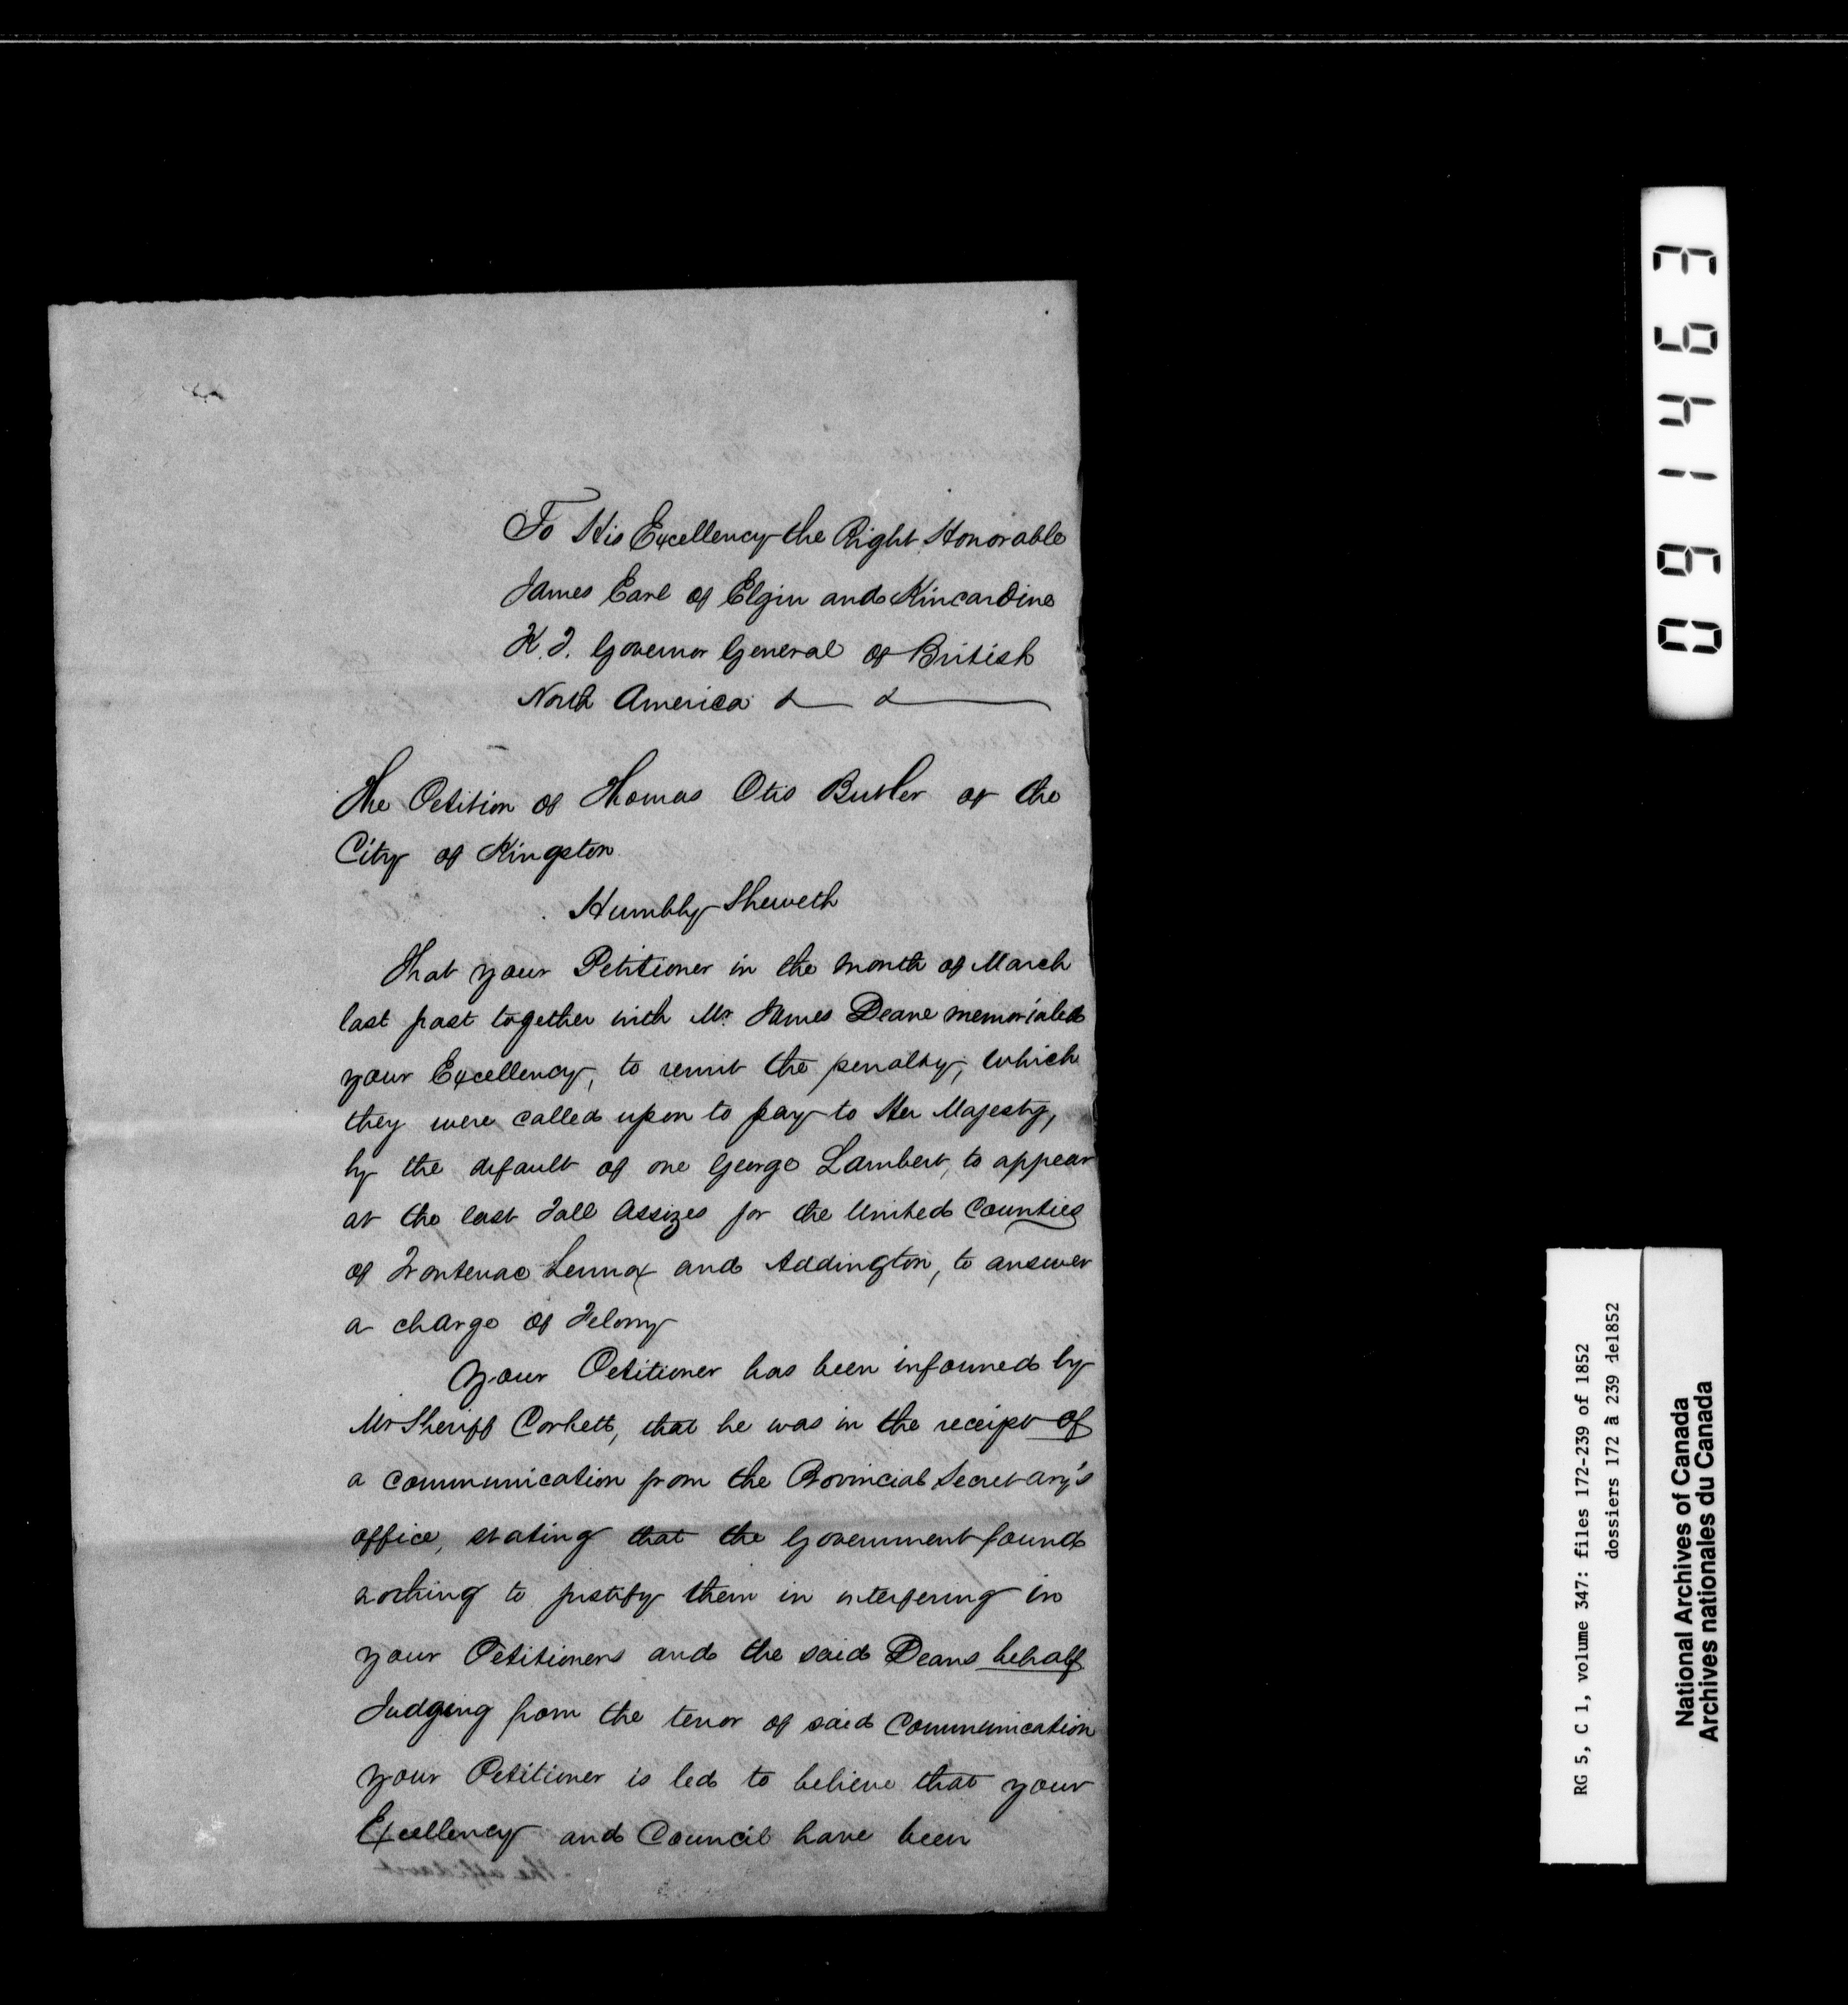 To His Excellency the Right Honorable
James Earl of Elgin and Kincardine
K.T. Governor General of British
North America & &
The Petition of Thomas Otis Butler of the
City of Kingston
Humbly Sheweth
That your Petitioner in the month of March
last past together with Mr James Deane memorialed
your Excellency, to remit the penalty, which
they were called upon to pay to Her Majesty,
by the default of one George Lambert, to appear
at the last Fall Assizes for the United Counties
of Frontenac Lennox and Addington, to answer
a charge of Felony
Your Petitioner has been informed by
Mr Sheriff Corbett, that he was in the receipt of
a communication from the Provincial Secretary's
office, stating that the Government found
nothing to justify them in interfering in
your Petitioners and the said Deans behalf
Judging from the tenor of said Communication
your Petitioner is led to believe that your
Excellency and Council have been
091463
RG 5, C 1, volume 347: files 172-239 of 1852
dossiers 172 à 239 de1852
National Archives of Canada
Archives nationales du Canada